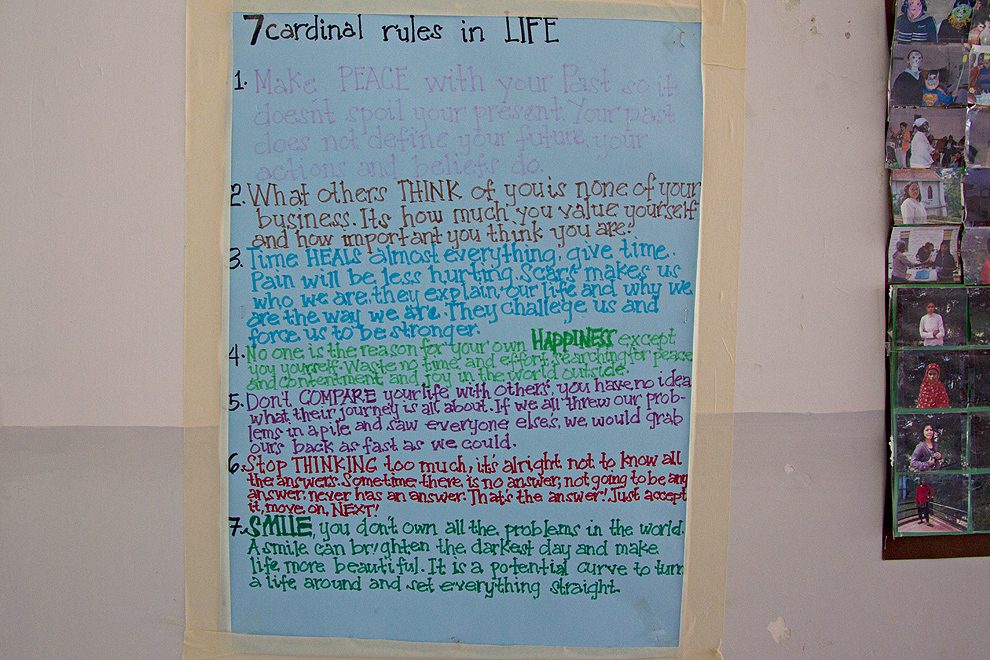 7 cardinal rules in LIFE
1. Make PEACE with your Past so it
doesn't spoil your present Your past
does not define your future, your
actions and beliefs do.
2. What others THINK of you is none of your
business. Its how much you value yourself
and how important you think you are.
3. Time HEALS almost everything, give time.
Pain will be less hurting. Scars makes us
who we are, they explain our life and why we
are the way we are. They challege us and
force us to be stronger.
4. No one is the reason for your own HAPPINESS except
you yourself. Waste no time and effort searching for peace
and contentment and You in the world outside.
5. Don't COMPARE your life with others, you have no idea
what their journey is all about. If we all threw our prob-
lems in a pile and saw everyone else's, we would grab
ours back as fast as we could.
6. Stop THINKING too much, it's alright not to know all
the answers. Sometime there is no answer, not going to be any
answer, never has an answer. That's the answer! Just accept
it, move on, NEXT!
7. SMILE, you don't own all the problems in the world.
A smile can brighten the darkest day and make
life more beautiful. It is a potential curve to turn
a life around and set everything straight.